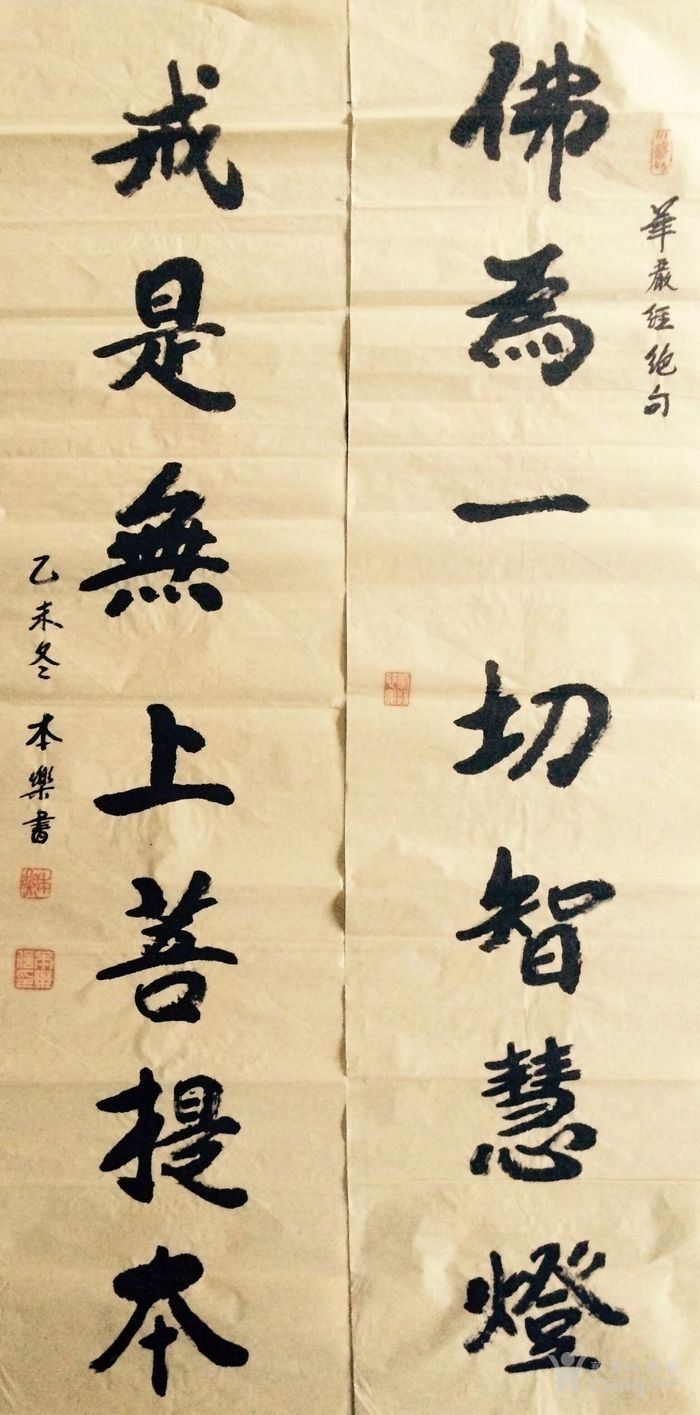 華嚴經絕句
佛為一切智慧燈
戒是無上菩提本
乙未冬 本樂書